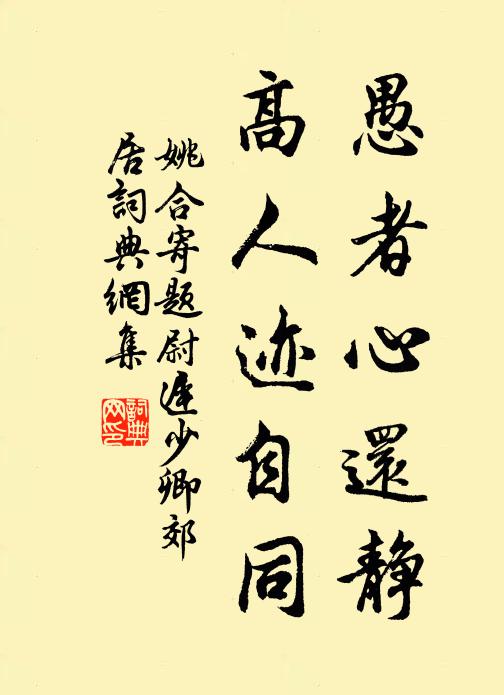 愚者心還靜
高人迹自同
姚合寄题尉遲少卿郊
居詞典網集
詞典
网印